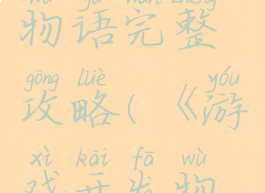 物语完整
gōng lüè yóu
攻略(《游
xì kāi fā wù
戏开发物